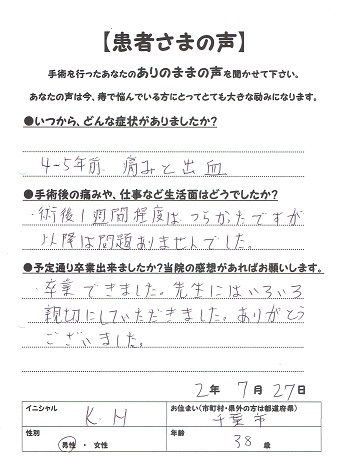 【患者さまの声】
手術を行ったあなたのありのままの声を聞かせて下さい。
あなたの声は今、痔で悩んでいる方にとってとても大きな励みになります。
●いつから、どんな症状がありましたか?
4-5年前 痛みと出血
●手術後の痛みや、仕事など生活面はどうでしたか?
・術後1週間程度は つらかったですが
以降は問題ありませんでした。
●予定通り卒業出来ましたか?当院の感想があればお願いします。
・卒業できました。先生にはいろいろ
親切にしていただきました。ありがとう
ございました。
2年 7月 27日
イニシャル お住まい(市町村・県外の方は都道府県)
K.H 千葉市
性別 年齢
男性 ・ 女性 38歳